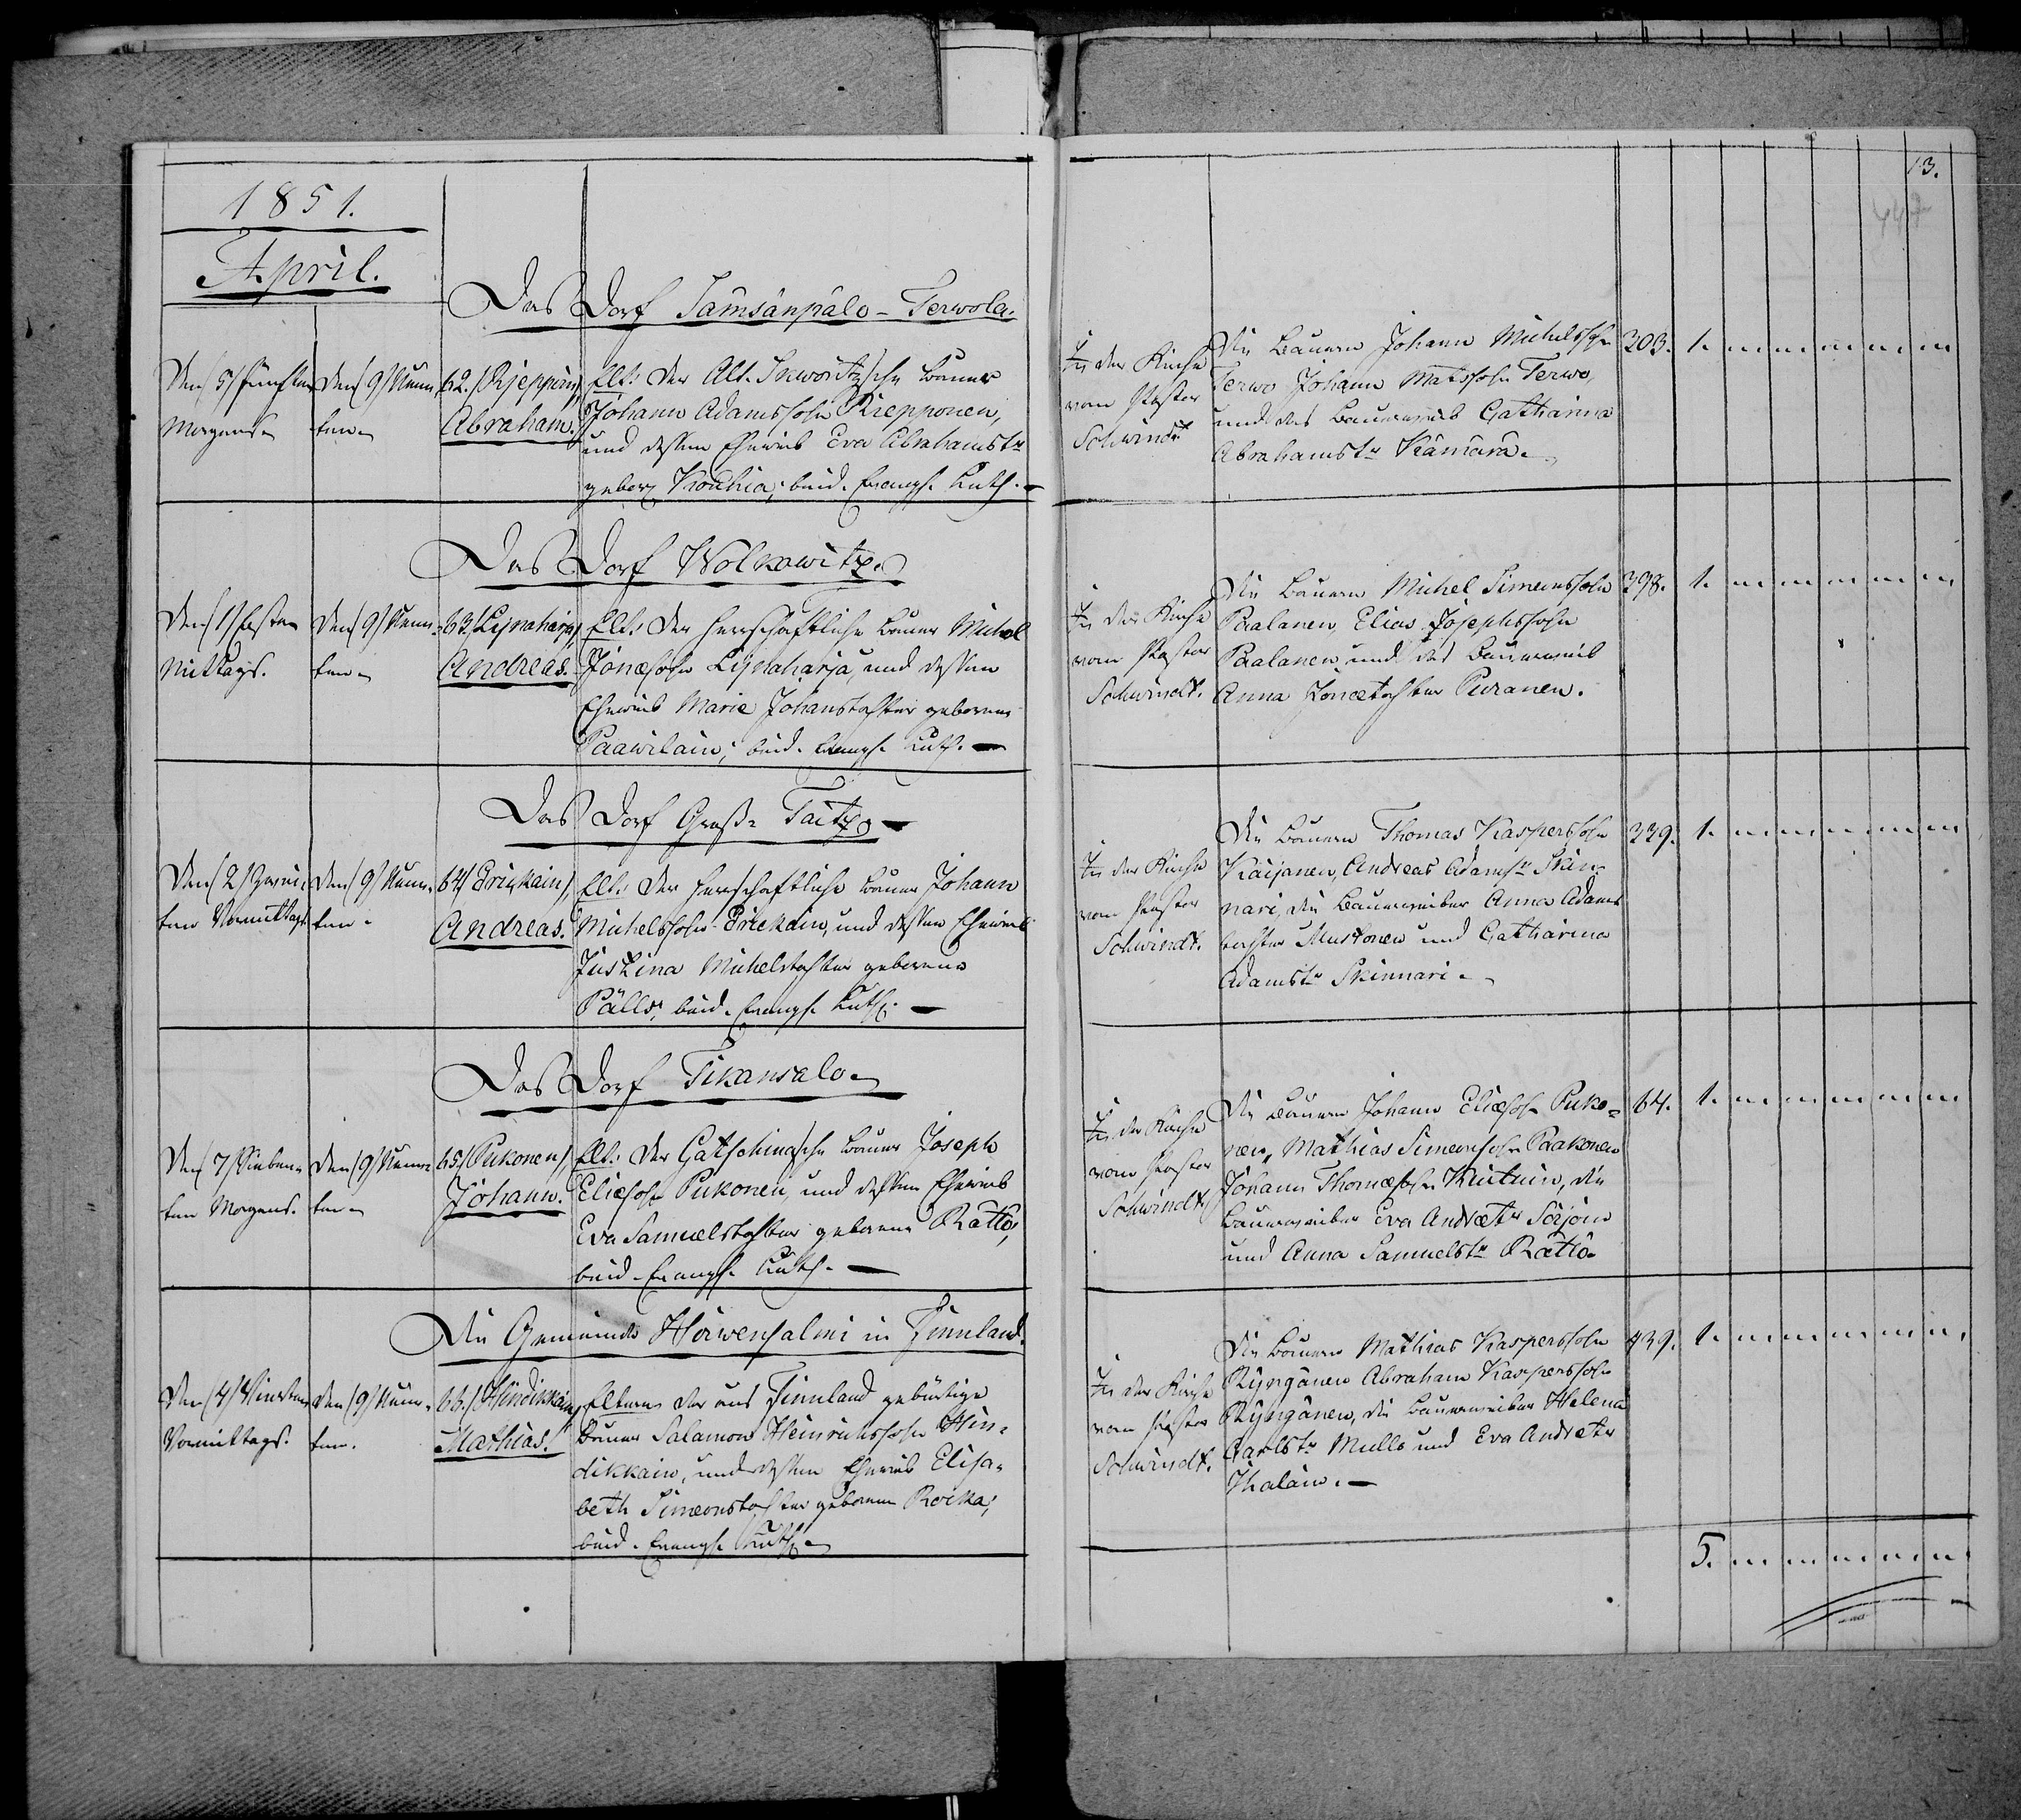 1851.
April.
13.
Das Dorf Jamsänpälo-Terwola.
Den /5/ fünften
Morgens.
Den /9/ Neun-
ten
62. /Rjeppöin/
Abraham.
Elt: Der Alt. Skworitzsche Bauer
Johann Adamssohn Riepponen,
und dessen Eheweib Eva Abrahamstr
gebor. Kouhia, beid. Evangl. Luth.
In der Kirche
vom Pastor
Schwindt
Die Bauern Johann Michelssohn
Terwo Johann Matssohn Terwo,
und das Bauerweib Catharina
Abrahamstr Kämärä.
203. 1.
Das Dorf Wolkowitz.
Den /1/ Ersten
Mittags.
Den /9/ Neun-
ten
63. /Lijnaharja/
Andreas.
Elt: Der herrschaftliche Bauer Michel
Jonæsohn Lijnaharja, und dessen
Eheweib Marie Johanstochter geborene
Paawilain; beid. Evangl. Luth.
In der Kirche
vom Pastor
Schwindt.
Die Bauern Michel Simeonssohn
Paalanen, Elias Josephssohn
Paalanen und das Bauerweib
Anna Jonætochter Puranen.
398. 1.
Das Dorf Groß-Taitz.
Den /2/ Zwei-
ten Vormittags
Den /9/ Neun-
ten
64. /Prickain/,
Andreas.
Elt: Der herrschaftliche Bauer Johann
Michelssohn Prickain, und dessen Eheweib
Justina Michelstochter geborene
Pälls, beid. Evangl. Luth.
In der Kirche
vom Pastor
Schwindt.
Die Bauern Thomas Kasperssohn
Kaijanen, Andreas Adamsn Skin-
nari, die Bauerweiber Anna Adams
tochter Mustonen und Catharina
Adamstr Skinnari.
339. 1.
Das Dorf Tikansalo.
Den /7/ Sieben-
ten Morgens.
Den /9/ Neun-
ten
65. /Pukonen/
Johann.
Elt: Der Gatschinasche Bauer Joseph
Eliæsohn Pukonen, und dessen Eheweib
Eva Samuelstochter geborene Rättö,
beid. Evangl. Luth.
In der Kirche
vom Pastor
Schwindt
Die Bauern Johann Eliæsohn Puko-
nen, Mathias Simeonsohn Paakonen
Johann Thomæsohn Kiutuin, die
Bauerweiber Eva Andrætr Sorjoin
und Anna Samuelstr Rättö.
64. 1.
Die Gemeinde Hirwensalmi in Finnland.
Den /4/ Vierten
Vormittags.
Den /9/ Neun-
ten.
66. /Hindikkain/
Mathias.
Eltern der aus Finnland gebürtige
Bauer Salamon Heinrichssohn Hin-
dikkain, und dessen Eheweib Elisa-
beth Simeonstochter geborene Rocka;
beid. Evangl. Luth.
In der Kirche
vom Pastor
Schwindt.
Die Bauern Mathias Kasperssohn
Ryngänen Abraham Kasperssohn
Ryngänen, die Bauerweiber Helena
Carlstr Mulls und Eva Andrætr
Ihalain.
439. 1.
5.